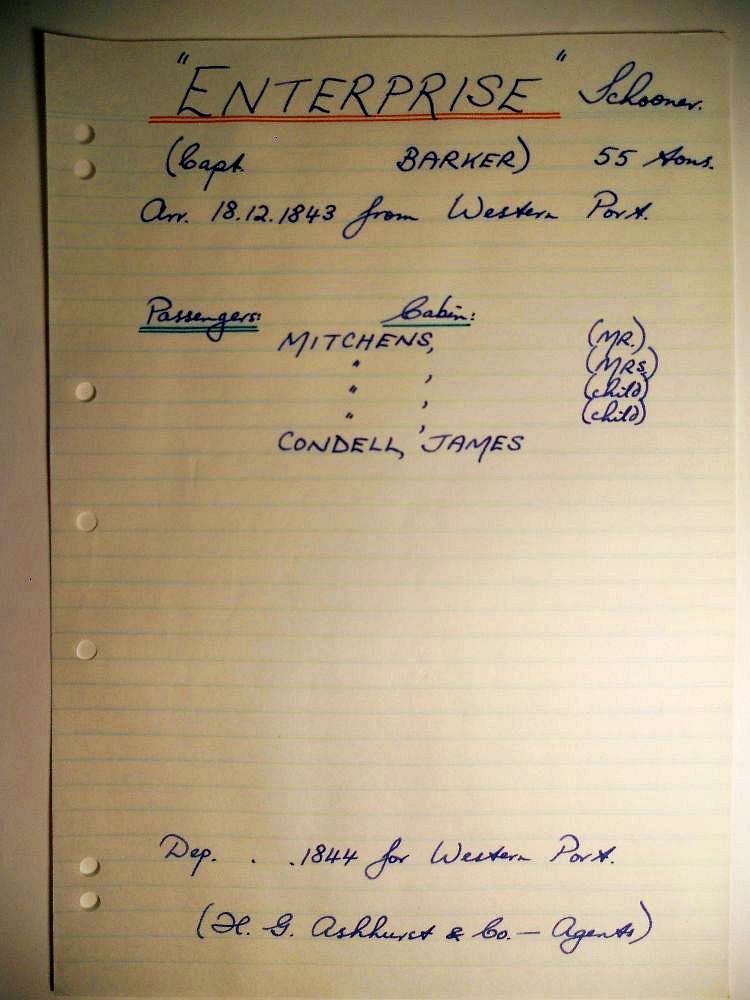 "ENTERPRISE" Schooner.
(Capt. BARKER) 55 tons.
Arr. 18.12.1843 from Western Port.
Passengers: Cabin:
MITCHENS, (MR.)
" , (MRS.)
" , (child)
" , (child)
CONDELL, JAMES
Dep. . .1844 for Western Port.
(H. G. Ashhurst & Co. — Agents)